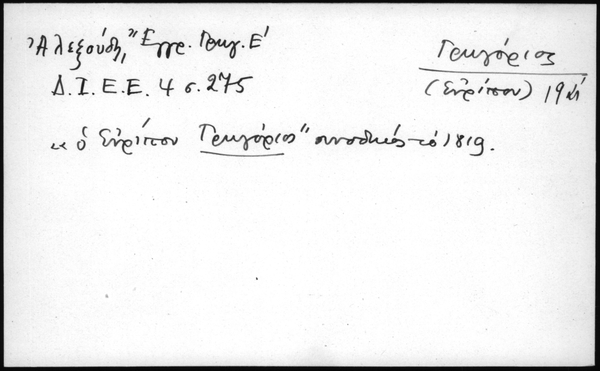 Ἀλεξούδη, "Ἔγγρ. Γρηγ. Ε'
Δ.Ι.Ε.Ε. 4 σ. 275
Γρηγόριος
(Εὐρίπου) 19
"ὁ Εὐρίπου Γρηγόριος" συνοδικός τὸ 1819.